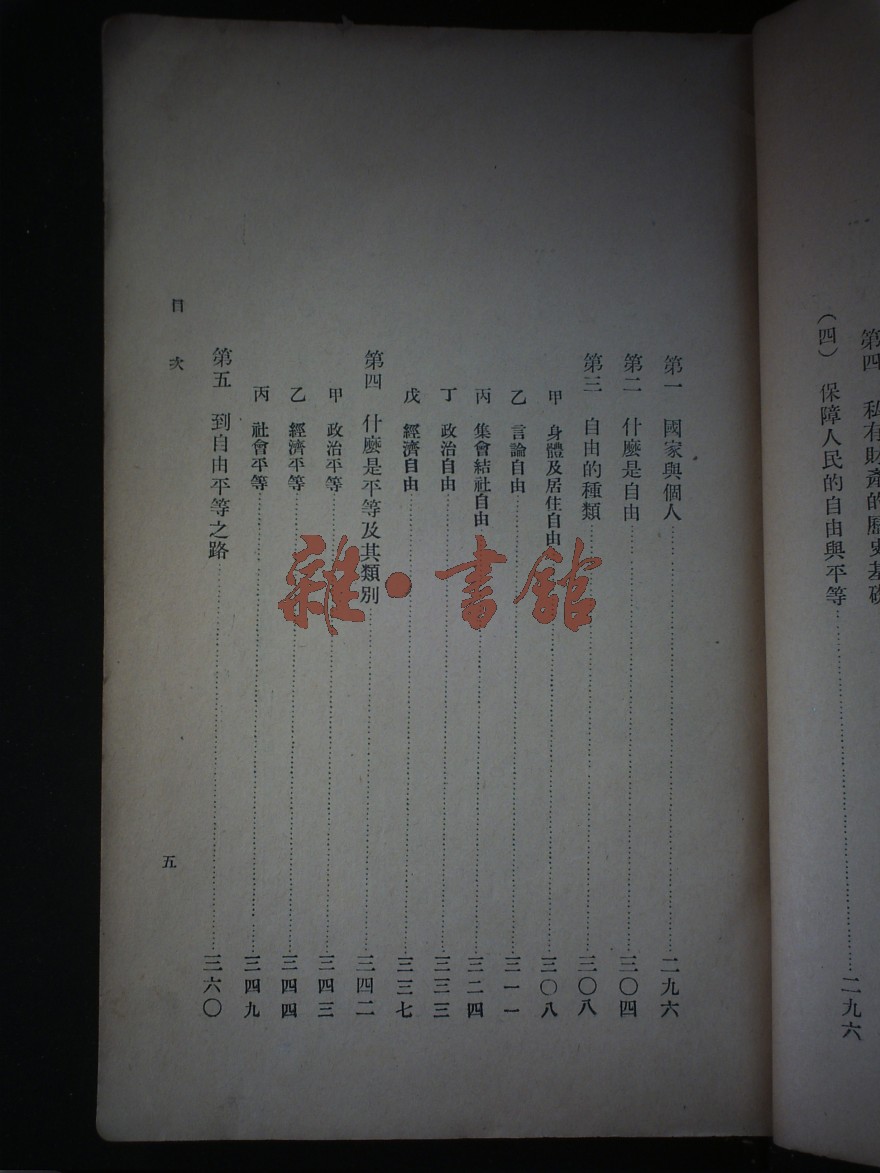 第四 私有財產的歷史基礎
（四） 保障人民的自由與平等……二九六
第一 國家與個人……二九六
第二 什麼是自由……三〇四
第三 自由的種類……三〇八
甲 身體及居住自由……三〇八
乙 言論自由……三一一
丙 集會結社自由……三二四
丁 政治自由……三三三
戊 經濟自由……三三七
第四 什麼是平等及其類別……三四二
甲 政治平等……三四三
乙 經濟平等……三四四
丙 社會平等……三四九
第五 到自由平等之路……三六〇
目次
五
雜·書館